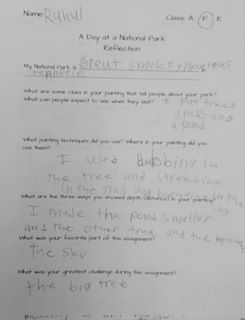 Name Rahul Class: A F K
A Day at a National Park
Reflection
My National Park is Great smokey
What are some clues in your painting that tell people about your park?
What can people expect to see when they visit? I put trees
grass and
a pond
What painting techniques did you use? Where in your painting did you
use them?
I used dabbing in
the tree and streching
in the gras and blending in the
What are the three ways you showed depth (distance) in your painting?
I made the pond smeller
and the other tree and the
What was your favorite part of this assignment?
the sky
What was your greatest challenge during this assignment?
the big tree